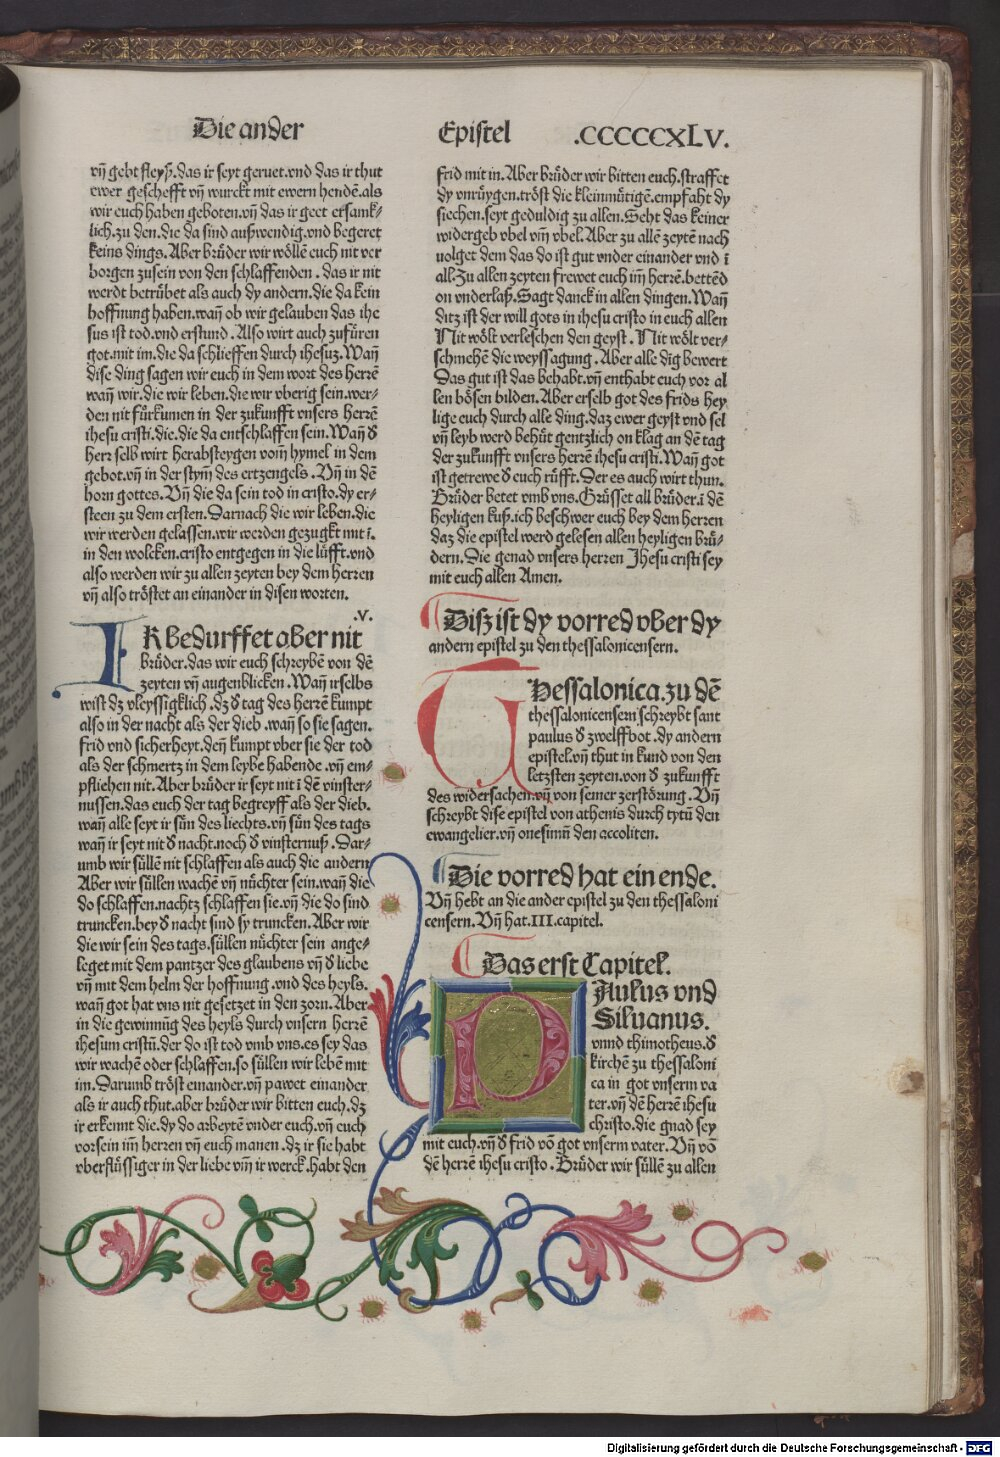 Die ander
Epistel .CCCCCXLV.
vn̄ gebt fleyß.das ir seyt geruet.vnd das ir thut
ewer geschefft vn̄ wurckt mit ewern hendē.als
wir euch haben geboten.vn̄ das ir geet ersamk/
lich.zu den.die da sind außwendig.vnd begeret
keins dings.Aber brůder wir wöllē euch nit ver
borgen zusein von den schlaffenden . das ir nit
werdt betrůbet als auch dy andern.die da kein
hoffnung haben.wañ ob wir gelauben das ihe
sus ist tod.vnd erstund . Also wirt auch zufůren
got.mit im.die da schlieffen durch ihesuz.Wañ
dise ding sagen wir euch in dem wort des herrē
wañ wir.die wir leben.die wir vberig sein.wer/
den nit fůrkumen in der zukunfft vnsers herrē
ihesu cristi.die.die da entschlaffen sein.Wañ d̄
herr selb wirt herabsteygen vom̄ hymel in dem
gebot.vn̄ in der stym̄ des ertzengels . Vn̄ in dē
horn gottes.Vn̄ die da sein tod in cristo.dy er/
steen zu dem ersten.Darnach die wir leben.die
wir werden gelassen.wir werden gezugkt mit ī.
in den wolcken.cristo entgegen in die lůfft.vnd
also werden wir zu allen zeyten bey dem herren
vn̄ also tröstet an einander in disen worten.
.V.
IR bedurffet aber nit
brůder.das wir euch schreybē von dē
zeyten vn̄ augenblicken.Wañ ir selbs
wist dz vleyssigklich.dz d̄ tag des herrē kumpt
also in der nacht als der dieb.wañ so sie sagen.
frid vnd sicherheyt.den̄ kumpt vber sie der tod
als der schmertz in dem leybe habende.vn̄ em/
pfliehen nit.Aber brůder ir seyt nit ī dē vinster/
nussen.das euch der tag begreyff als der dieb.
wañ alle seyt ir sůn des liechts.vn̄ sůn des tags
wañ ir seyt nit d̄ nacht.noch d̄ vinsternuß . Dar/
umb wir süllē nit schlaffen als auch die andern
Aber wir süllen wachē vn̄ nůchter sein.wañ die
do schlaffen.nachtz schlaffen sie.vn̄ die do sind
truncken.bey d̄ nacht sind sy truncken.Aber wir
die wir sein des tags.süllen nůchter sein ange/
leget mit dem pantzer des glaubens vn̄ d̄ liebe
vn̄ mit dem helm der hoffnung.vnd des heyls.
wañ got hat vns nit gesetzet in den zorn.Aber
in die gewinnūg des heyls durch vnsern herrē
ihesum cristū.der do ist tod vmb vns.es sey das
wir wachē oder schlaffen.so süllen wir lebē mit
im.Darumb tröst einander.vn̄ pawet einander
als ir auch thut.aber brůder wir bitten euch.dz
ir erkennt die.dy do arbeytē vnder euch.vn̄ euch
vorsein im̄ herren vn̄ euch manen.dz ir sie habt
vberflüssiger in der liebe vm̄ ir werck.habt den
frid mit in.Aber brůder wir bitten euch.straffet
dy vnrůygen.tröst die kleinmůtigē.empfaht dy
siechen.seyt geduldig zu allen.Seht das keiner
widergeb vbel vm̄ vbel.Aber zu allē zeytē nach
uolget dem das do ist gut vnder einander vnd ī
all.Zu allen zeyten frewet euch im̄ herrē.bettēd
on vnderlaß.Sagt danck in allen dingen.Wañ
ditz ist der will gots in ihesu cristo in euch allen
Nit wölt verleschen den geyst . Nit wölt ver/
schmehē die weyssagung . Aber alle dig bewert
Das gut ist das behabt.vn̄ enthabt euch vor al
len bösen bilden.Aber er selb got des frids hey
lige euch durch alle ding.daz ewer geyst vnd sel
vn̄ leyb werd behůt gentzlich on klag an dē tag
der zukunfft vnsers herrē ihesu cristi.Wañ got
ist getrewe d̄ euch růfft.Der es auch wirt thun.
Brůder betet vmb vns.Grůsset all brůder.ī dē
heyligen kuß.ich beschwer euch bey dem herren
daz die epistel werd gelesen allen heyligen brů/
dern.Die genad vnsers herren Jhesu cristi sey
mit euch allen Amen.
Disz ist dy vorred vber dy
andern epistel zu den thessalonicensern.
THessalonica.zu dē
thessalonicensern schreybt sant
paulus d̄ zwelffbot.dy andern
epistel.vn̄ thut in kund von den
letzsten zeyten.von d̄ zukunfft
des widersachen.vn̄ von seiner zerstörung.Vn̄
schreybt dise epistel von athenis durch tytū den
ewangelier.vn̄ onesimū den accoliten.
Die vorred hat ein ende.
Vn̄ hebt an die ander epistel zu den thessaloni
censern.Vn̄ hat.III.capitel.
Das erst Capitel.
PAulus vnd
Siluanus.
vnnd thimotheus.d̄
kirchē zu thessaloni
ca in got vnserm va
ter.vn̄ dē herrē ihesu
christo.die gnad sey
mit euch.vn̄ d̄ frid vō got vnserm vater.Vn̄ vō
dē herrē ihesu cristo . Brůder wir süllē zu allen
Digitalisierung gefördert durch die Deutsche Forschungsgemeinschaft - DFG